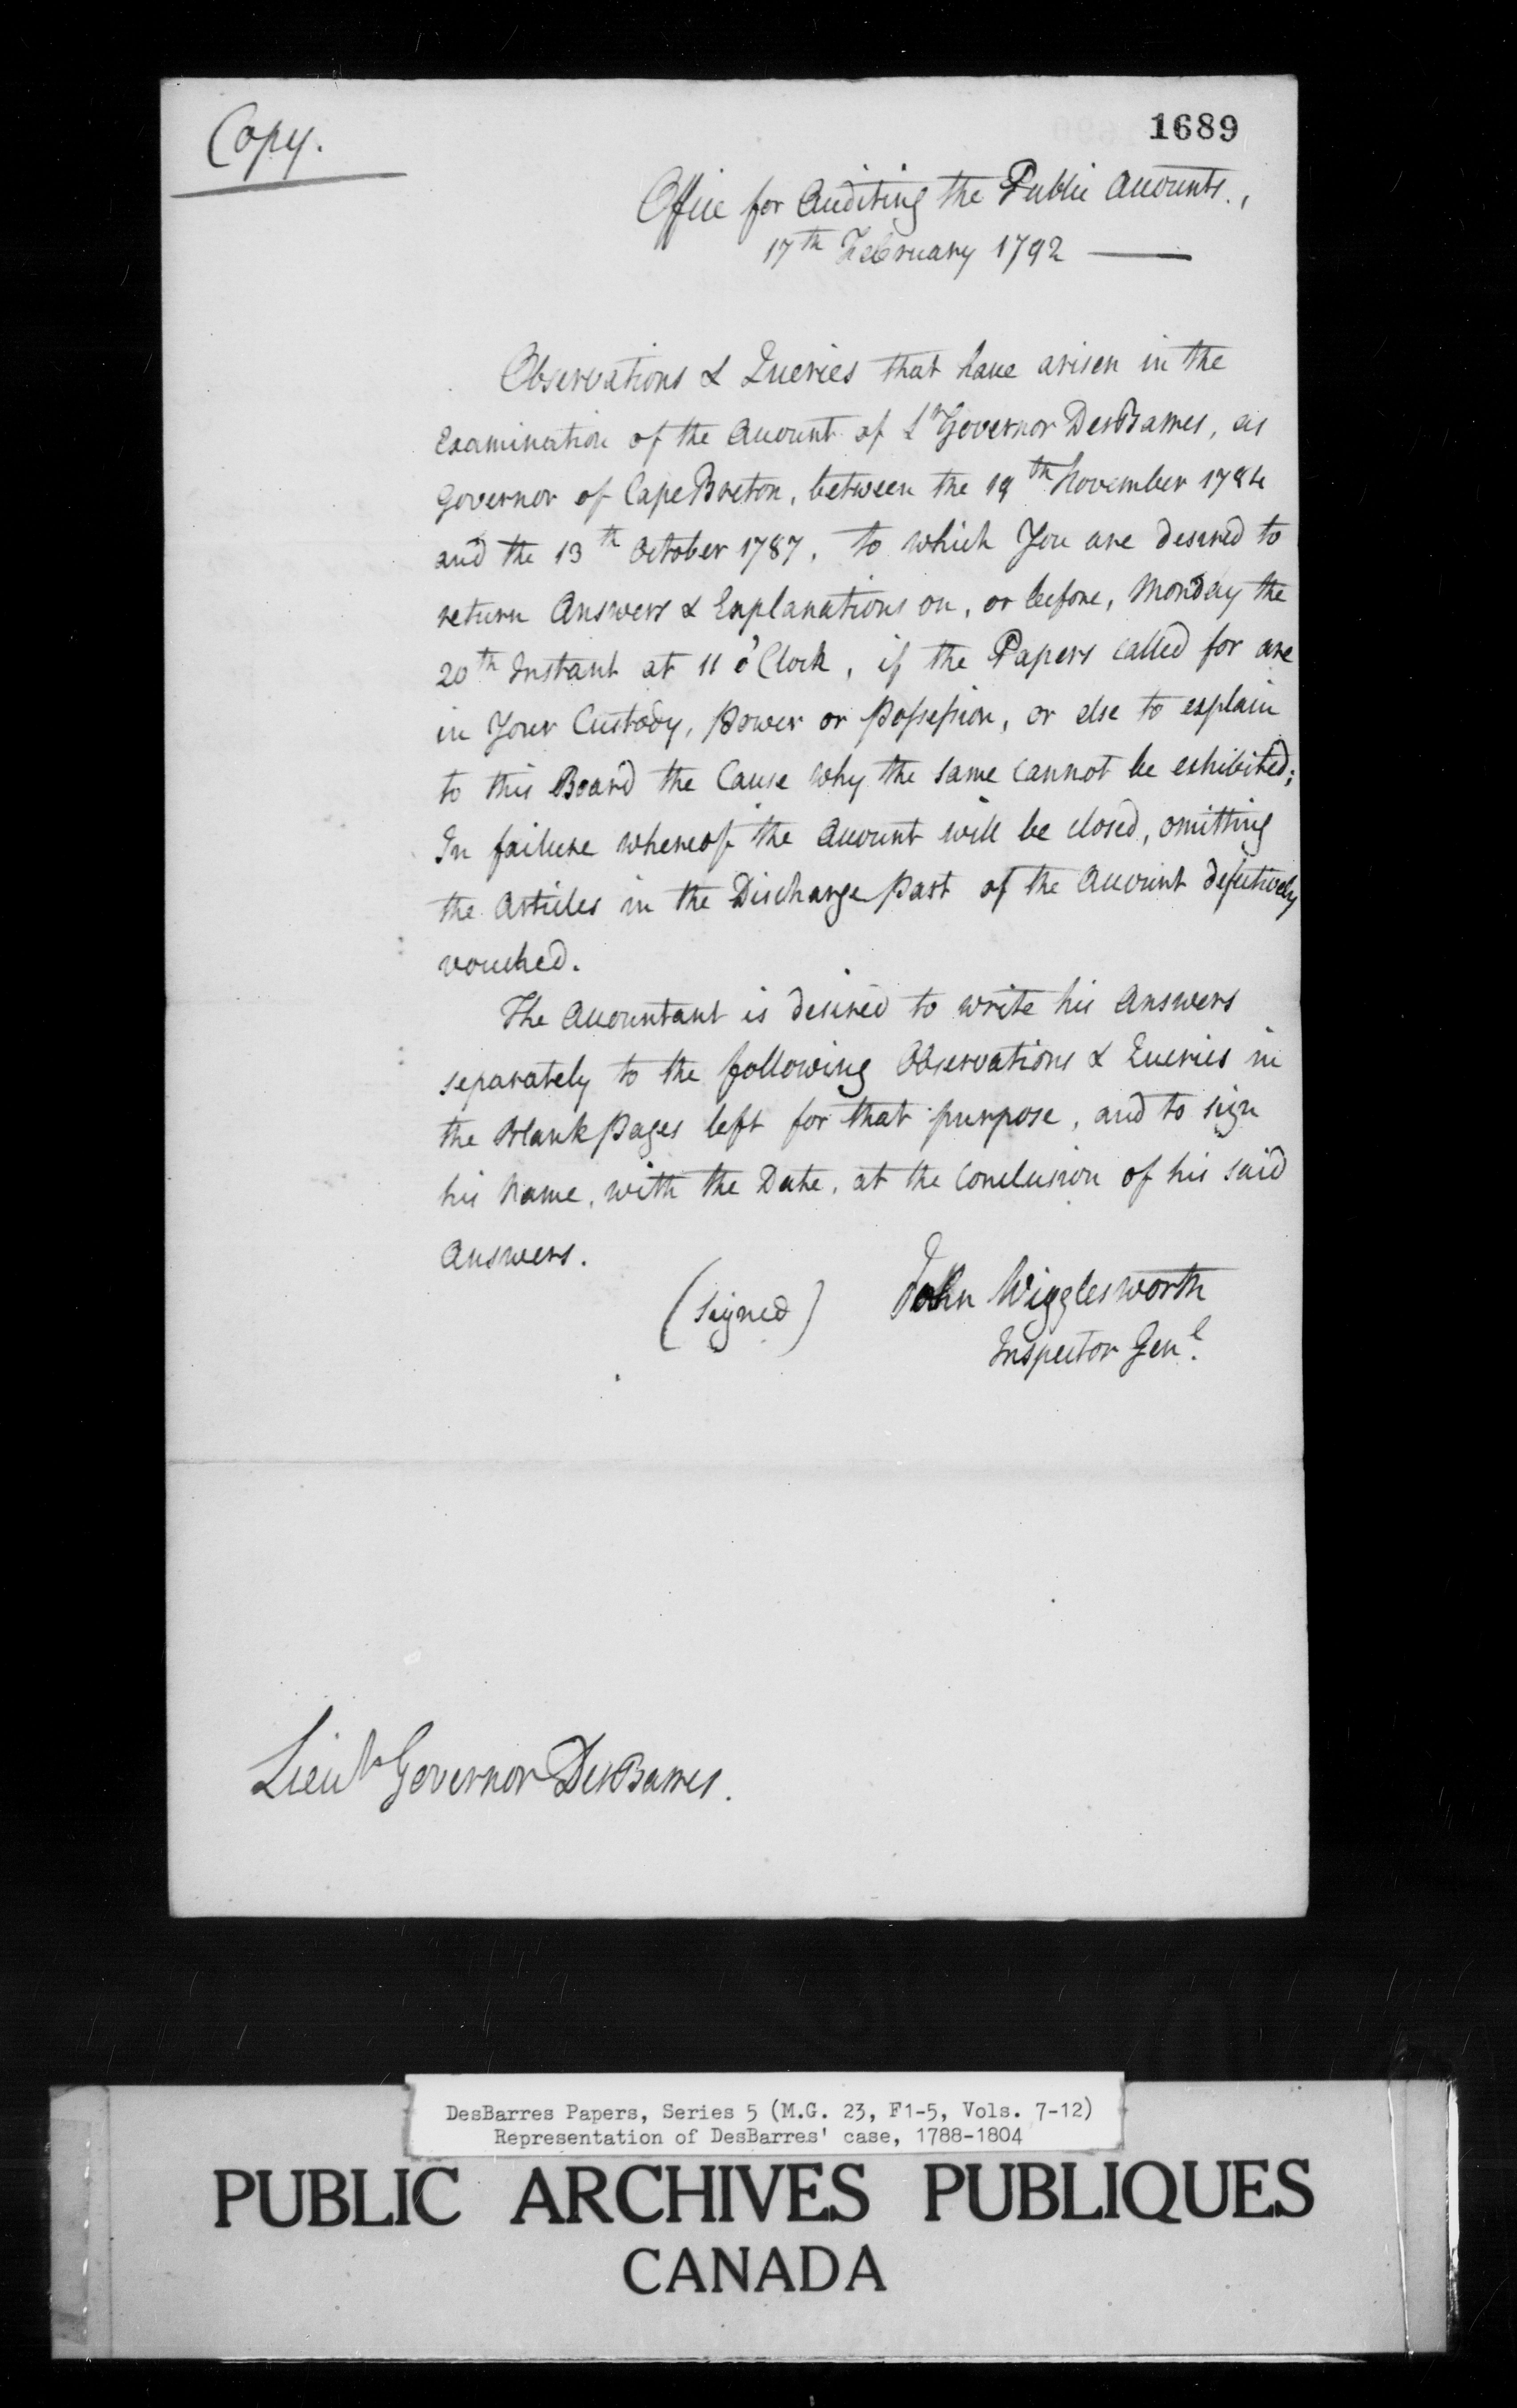 Copy.
1689
Office for Auditing the Public Accounts.,
17th February 1792 —
Observations & Queries that have arisen in the
Examination of the Account of Lt Governor DesBarres, as
Governor of Cape Breton, between the 19th November 1784
and the 13th October 1787, to which You are desired to
return Answers & Explanations on, or before, Monday the
20th Instant at 11 o'Clock, if the Papers called for are
in Your Custody, Power or Possession, or else to explain
to this Board the Cause why the same cannot be exhibited;
In failure whereof the Account will be closed, omitting
the Articles in the Discharge part of the Account defectively
vouched.
The Accountant is desired to write his Answers
separately to the following Observations & Queries in
the Blank Pages left for that purpose, and to sign
his Name, with the Date, at the Conclusion of his said
Answers.
(signed) John Wigglesworth
Inspector Genl.
Lieut Governor DesBarres.
DesBarres Papers, Series 5 (M.G. 23, F1-5, Vols. 7-12)
Representation of DesBarres' case, 1788-1804
PUBLIC ARCHIVES PUBLIQUES
CANADA